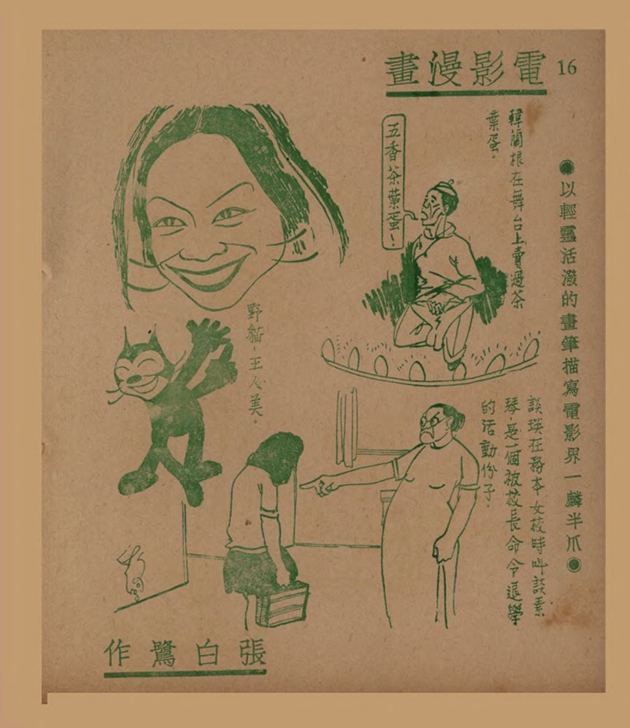 16
電影漫畫
●以輕靈活潑的畫筆描寫電影界一麟半爪●
韓蘭根在舞台上賣過茶
葉蛋。
五香茶葉蛋！
野貓，王人美。
談瑛在務本女校時叫談素
琴，是一個被校長命令退學
的活動份子。
張白鷺作